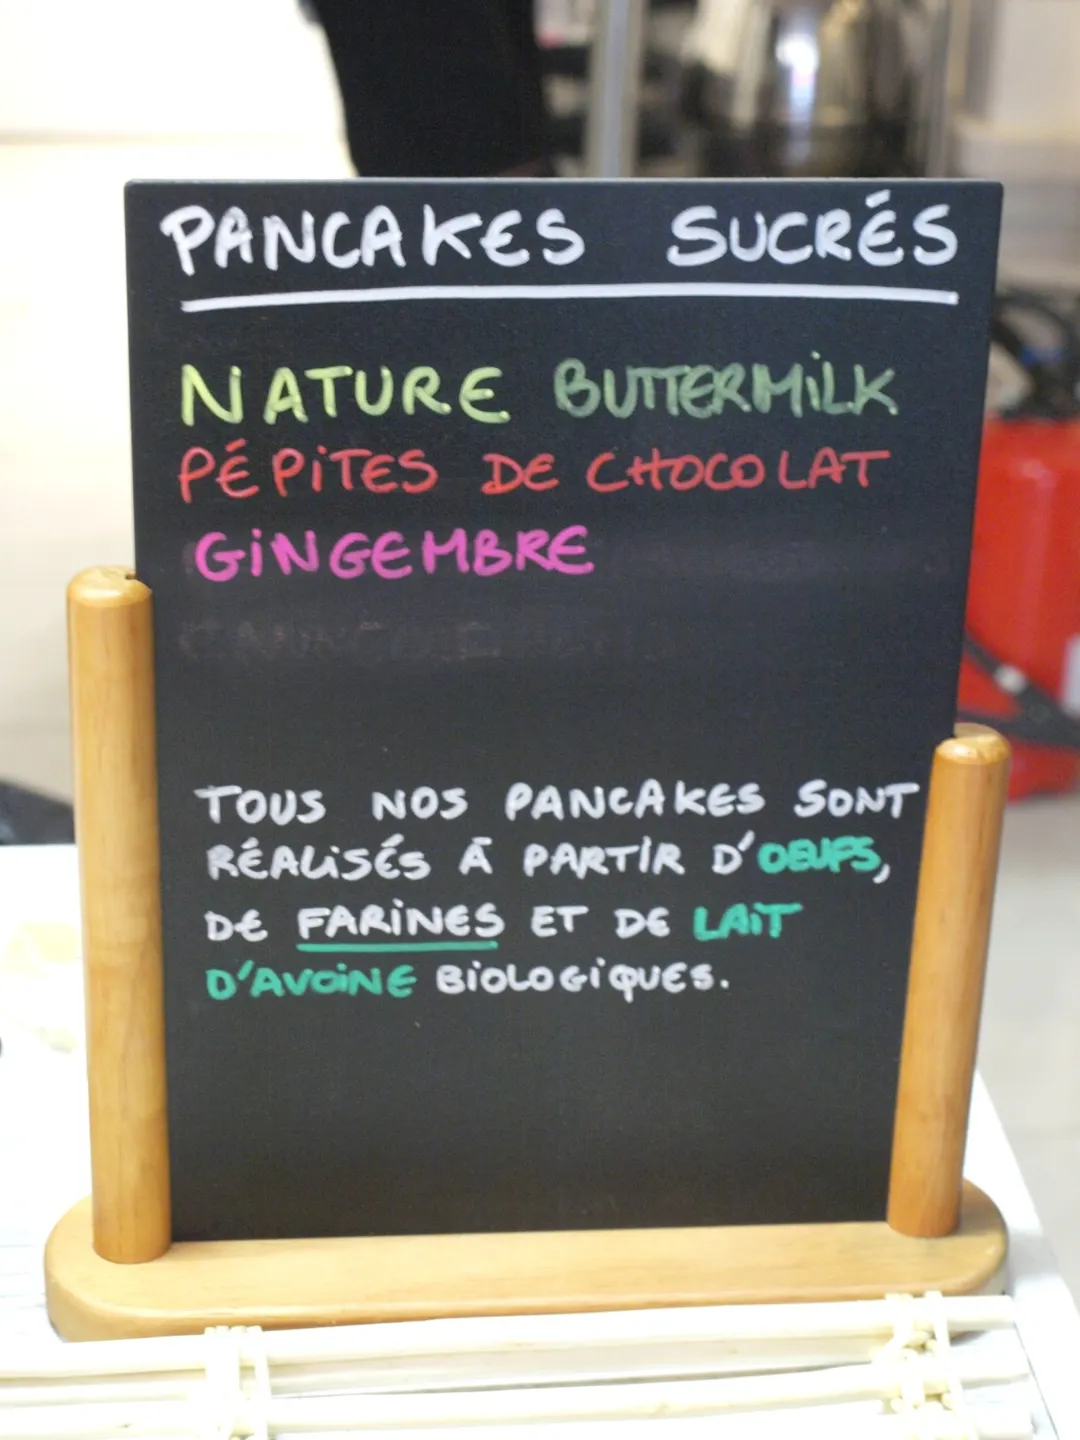 PANCAKES SUCRÉS
NATURE BUTTERMILK
PÉPITES DE CHOCOLAT
GINGEMBRE
TOUS NOS PANCAKES SONT
RÉALISÉS À PARTIR D'OEUFS,
DE FARINES ET DE LAIT
D'AVOINE BIOLOGIQUES.